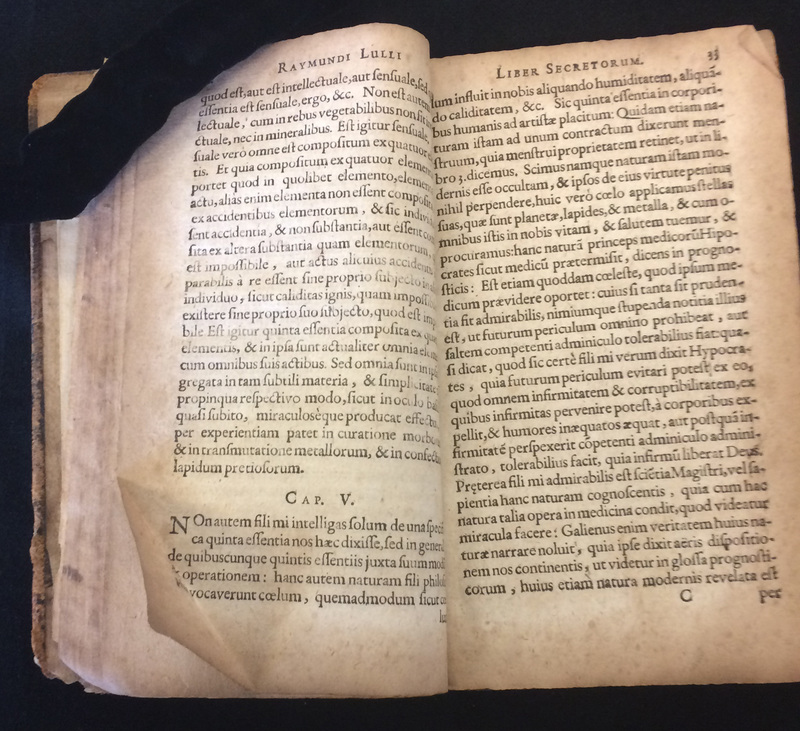 RAYMUNDI LULLI
quod est, aut est intellectuale, aut sensuale, sed
essentia est sensuale, ergo, &c. Non est autem
lectuale, cum in rebus vegetabilibus non sit
ctuale, nec in mineralibus. Est igitur sensuale
suale verò omne est compositum ex quatuor
tis. Et quia compositum ex quatuor
portet quod in quolibet elemento,
actu, alias enim elementa non essent
ex accidentibus elementorum, & sic
sent accidentia, & non substantia, aut essent
sita ex altera substantia quam elementorum,
est impossibile, aut actus alicuius
parabilis à re essent sine proprio
individuo, sicut caliditas ignis, quam
existere sine proprio suo subjecto, quod est
bile Est igitur quinta essentia composita ex
elementis, & in ipsa sunt actualiter omnia
cum omnibus suis actibus. Sed omnia sunt
gregata in tam subtili materia, &
propinqua respectivo modo, sicut in
quasi subito, miraculoséque producat
per experientiam patet in curatione
& in transmutatione metallorum, & in
lapidum pretiosorum.
CAP. V.
NOn autem fili mi intelligas solum de una
ca quinta essentia nos hæc dixisse, sed in
de quibuscunque quintis essentiis juxta suum
operationem: hanc autem naturam fili
vocaverunt cœlum, quemadmodum sicut
LIBER SECRETORUM. 33
lum influit in nobis aliquando humiditatem, aliquã-
do caliditatem, &c. Sic quinta essentia in corpori-
bus humanis ad artistæ placitum: Quidam etiam na-
turam istam ad unum contractum dixerunt men-
struum, quia menstrui proprietatem retinet, ut in li-
bro 3. dicemus. Scimus namque naturam istam mo-
dernis esse occultam, & ipsos de eius virtute penitus
nihil perpendere, huic verò cœlo applicamus stellas
suas, quæ sunt planetæ, lapides, & metalla, & cum o-
mnibus istis in nobis vitam, & salutem tuemur, &
procuramus: hanc naturã princeps medicorũ Hipo-
crates sicut medicũ prætermisit, dicens in progno-
sticis: Est etiam quoddam cœleste, quod ipsum me-
dicum prævidere oportet: cuius si tanta sit pruden-
tia fit admirabilis, nimiumque stupenda notitia illius
est, ut futurum periculum omnino prohibeat, aut
saltem competenti adminiculo tolerabilius fiat: qua-
si dicat, quod sic certè fili mi verum dixit Hypocra-
tes, quia futurum periculum evitari potest ex eo,
quod omnem infirmitatem & corruptibilitatem, ex
quibus infirmitas pervenire potest, à corporibus ex-
pellit, & humores inæquatos æquat, aut postquã in-
firmitatẽ perspexerit cõpetenti adminiculo admini-
strato, tolerabilius facit, quia infirmũ liberat Deus.
Præterea fili mi admirabilis est sciẽtia Magistri, vel sa-
pientia hanc naturam cognoscentis, quia cum hac
natura talia opera in medicina condit, quod videatur
miracula facere: Galienus enim veritatem huius na-
turæ narrare noluit, quia ipse dixit aeris dispositio-
nem nos continentis, ut videtur in glossa prognosti-
corum, huius etiam natura modernis revelata est
C per